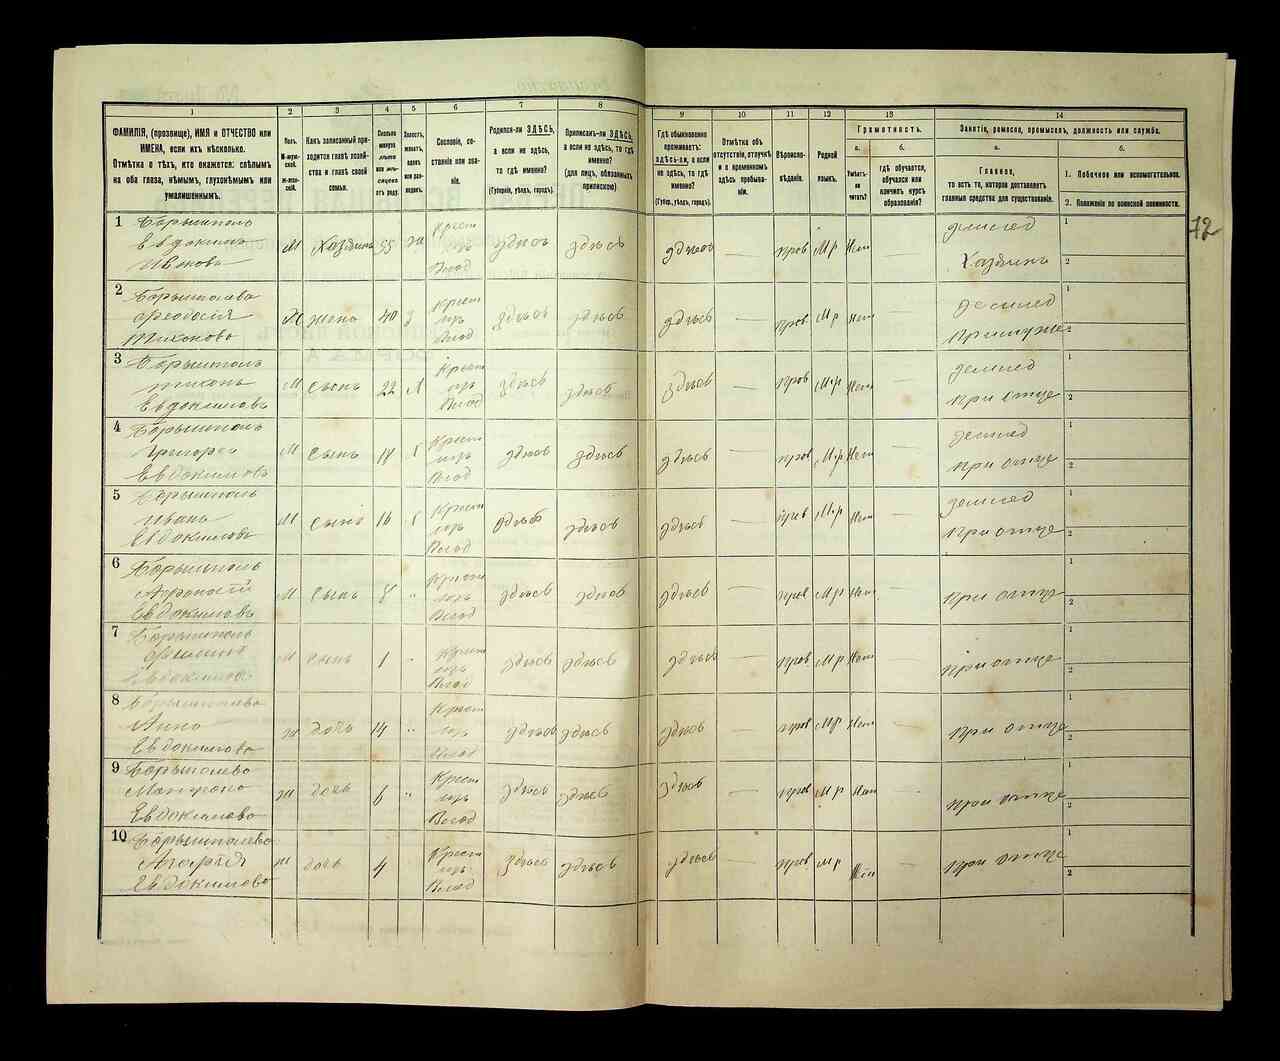 1 2 3 4 5 6 7 8 9 10 11 12 13 14
ФАМИЛІЯ, (прозвище), ИМЯ и ОТЧЕСТВО или
ИМЕНА, если ихъ нѣсколько.
Отмѣтка о тѣхъ, кто окажется: слѣпымъ
на оба глаза, нѣмымъ, глухонѣмымъ или
умалишеннымъ.
Полъ.
М-муж-
ской.
Ж-жен-
скій.
Какъ записанный при-
ходится главѣ хозяй-
ства и главѣ своей
семьи.
Сколько
минуло
лѣтъ
отъ роду.
Холостъ,
женатъ,
вдовъ
или раз-
веденъ.
Сословіе, со-
стояніе или зва-
ніе.
Родился-ли ЗДѢСЬ,
а если не здѣсь,
то гдѣ именно?
(Губернія, уѣздъ, городъ).
Приписанъ-ли ЗДѢСЬ,
а если не здѣсь, то гдѣ
именно?
(для лицъ, обязанныхъ
припискою)
Гдѣ обыкновенно
проживаетъ:
здѣсь-ли, а если
не здѣсь, то гдѣ
именно?
(Губер., уѣздъ, городъ).
Отмѣтка объ
отсутствіи, отлучкѣ
и о временномъ
здѣсь пребыва-
ніи.
Вѣроиспо-
вѣданіе.
Родной
языкъ.
Грамотность.
а.
Умѣетъ-
ли
читать?
б.
гдѣ обучается,
обучался или
кончилъ курсъ
образованія?
Занятіе, ремесло, промыселъ, должность или служба.
а.
Главное,
то есть то, которое доставляетъ
главныя средства для существованія.
б.
1. Побочное или вспомогательное.
2. Положеніе по воинской повинности.
12
1 Барышполь
Евдокимъ
Ивановъ
М Хазяинъ 55 Ж Крест
Влад
здѣсь здѣсь здѣсь — прав М р Нет — землед
Хазяинъ
1
2
2
Феодосія
Тихонова
жена 40 Крест
Влад
здѣсь здѣсь здѣсь — прав М р Нет — землед
При мужѣ
1
2
3 Барышполь
Тихонъ
Евдокимовъ
М Сынъ 22 Крест
Влад
здѣсь здѣсь здѣсь — прав М р Нет — землед
При отце
1
2
4 Барышполь
Григорей
Евдокимовъ
М Сынъ Крест
Влад
здѣсь здѣсь здѣсь — прав М р Нет — землед
При отце
1
2
5 Барышполь
Иванъ
Евдокимовъ
М Сынъ 16 Крест
Влад
здѣсь здѣсь здѣсь — прав М р Нет — землед
При отце
1
2
6 Барышполь
Евдокимовъ
М Сынъ Крест
Влад
здѣсь здѣсь здѣсь — прав М р Нет — При отце
1
2
7 Барышполь
Евдокимовъ
М Сынъ 1 Крест
Влад
здѣсь здѣсь здѣсь — прав М р Нет — При отце
1
2
8
Анна
Евдокимова
Ж дочь 14 Крест
Влад
здѣсь здѣсь здѣсь — прав М р Нет — При отце
1
2
9
Матрона
Евдокимова
Ж дочь 6 Крест
Влад
здѣсь здѣсь здѣсь — прав М р Нет — При отце
1
2
10
Агафія
Евдокимова
Ж дочь 4 Крест
Влад
здѣсь здѣсь здѣсь — прав М р Нет — При отце
1
2